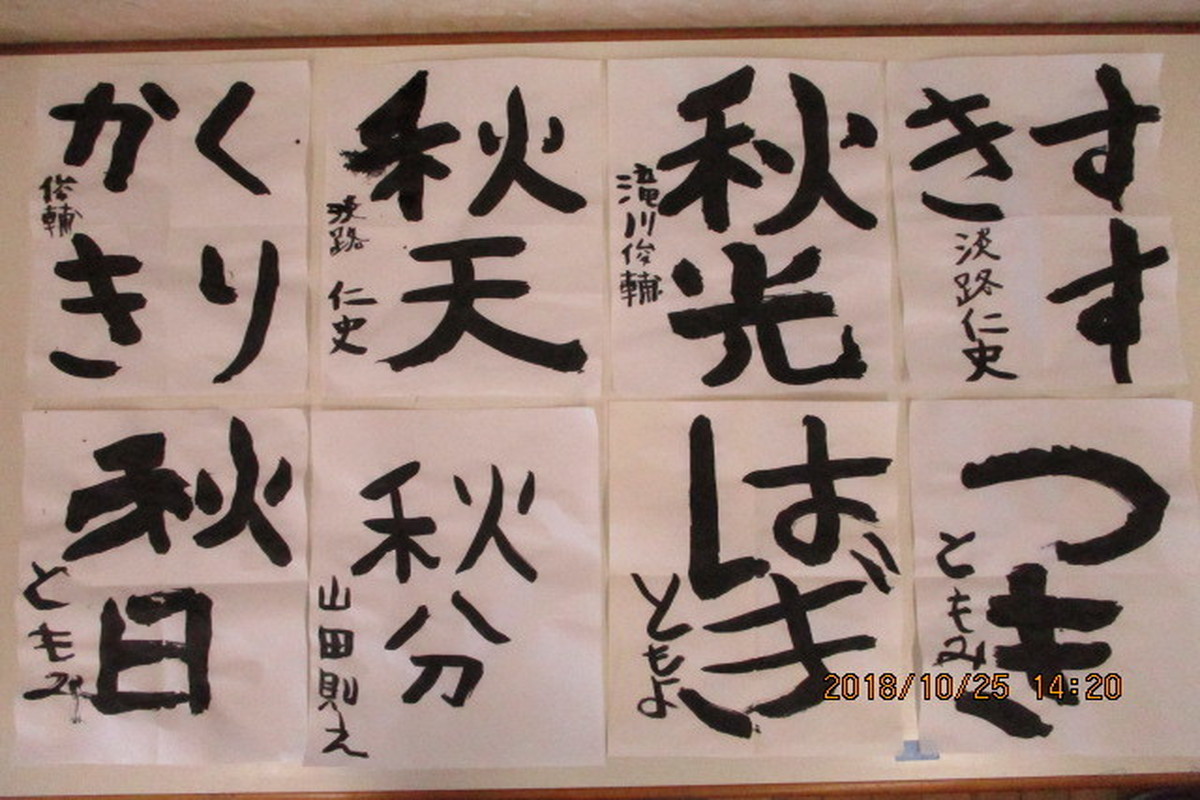 すすき
淡路仁史
秋光
滝川俊輔
秋天
淡路仁史
くりかき
俊輔
つき
ともみ
はぎ
ともよ
秋分
山田則え
秋日
ともみ
2018/10/25 14:20